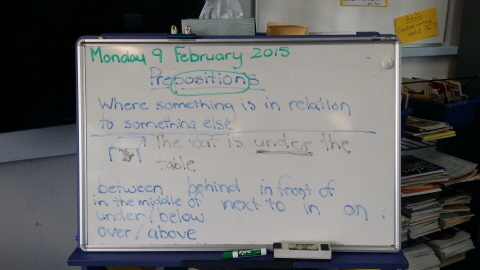 Monday 9 February 2015
Prepositions
Where something is in relation
to something else
The cat is under the
table
between behind in front of
in the middle of next to in on
under/below
over/above